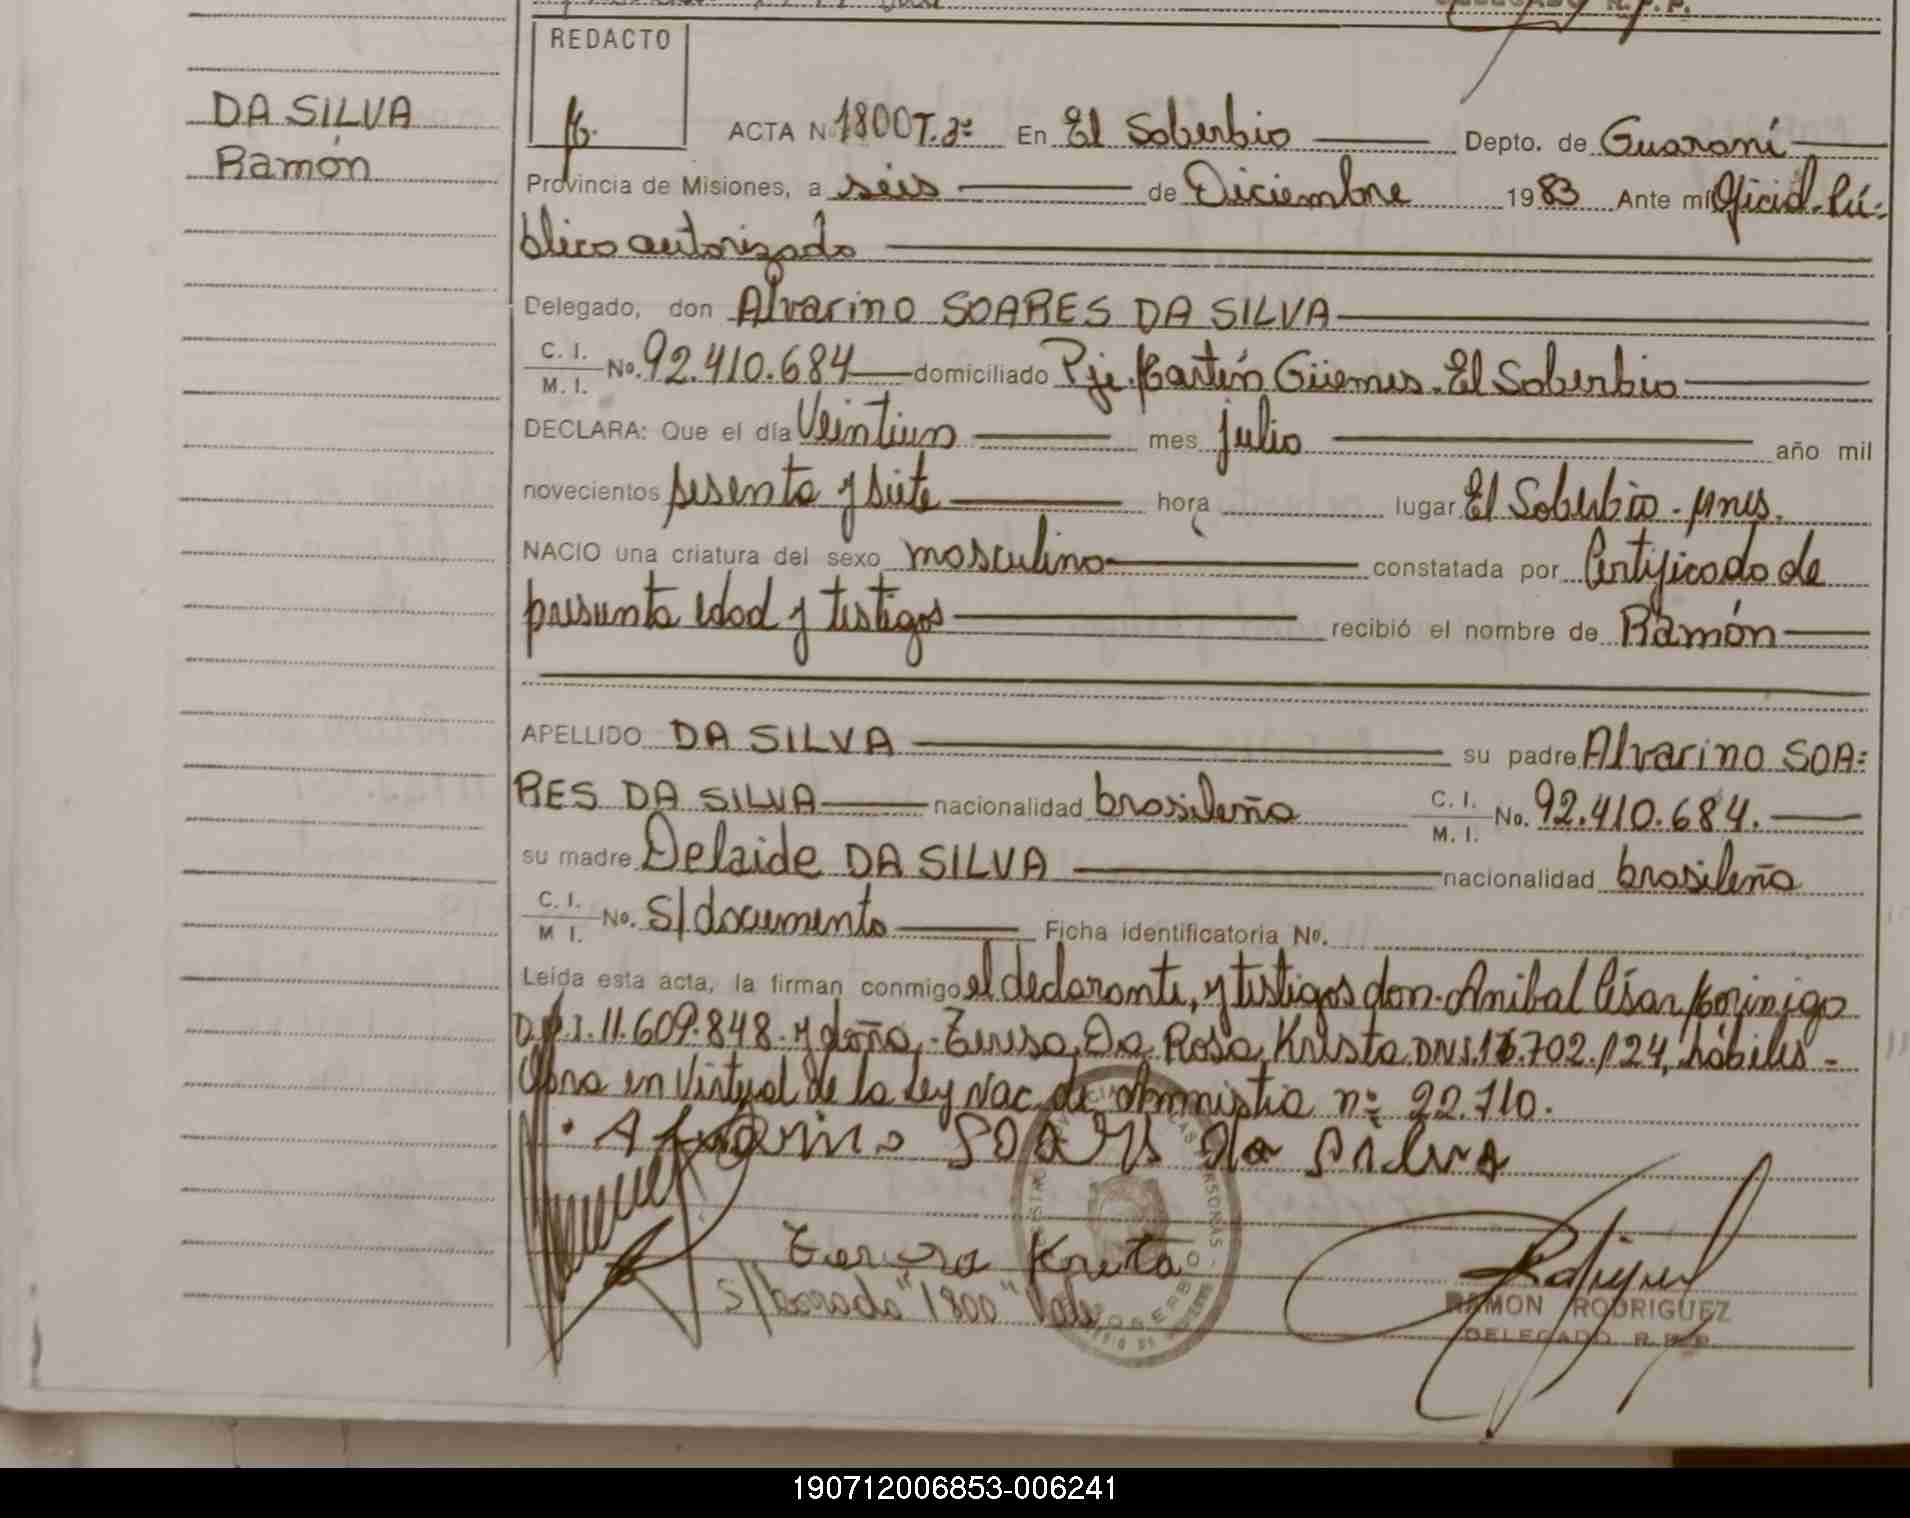 REDACTO
DA SILVA
Ramón
ACTA N 1800 T. 3º En El Soberbio Depto. de Guaraní
Provincia de Misiones, a seis de Diciembre 1983 Ante mí Oficial Pú-
blico autorizado
Delegado, don Alvarino SOARES DA SILVA
C. I.
M. I. No. 92.410.684 domiciliado Pje. Martín Güemes. El Soberbio
DECLARA: Que el día Veintiun mes julio año mil
novecientos sesenta y siete hora lugar El Soberbio - Mnes.
NACIO una criatura del sexo masculino constatada por Certificado de
presunta edad y testigos recibió el nombre de Ramón
APELLIDO DA SILVA su padre Alvarino SOA-
RES DA SILVA nacionalidad brasileña C. I.
M. I. No. 92.410.684.
su madre Delaide DA SILVA nacionalidad brasileña
C. I.
M. I. No. S/documento Ficha identificatoria No.
Leída esta acta, la firman conmigo el declarante, y testigos don Anibal César Morinigo
D.N.I. 11.609.848. y doña Teresa Da Rosa Krista DNI. .702.124, hábiles -
Obra en Virtud de la Ley Nac. de Ammistia nº 22.710.
Alvarino Soares da Silva
Teresa Krista
S/borado "1800" Vale
RAMON RODRIGUEZ
DELEGADO R. P. P.
190712006853-006241